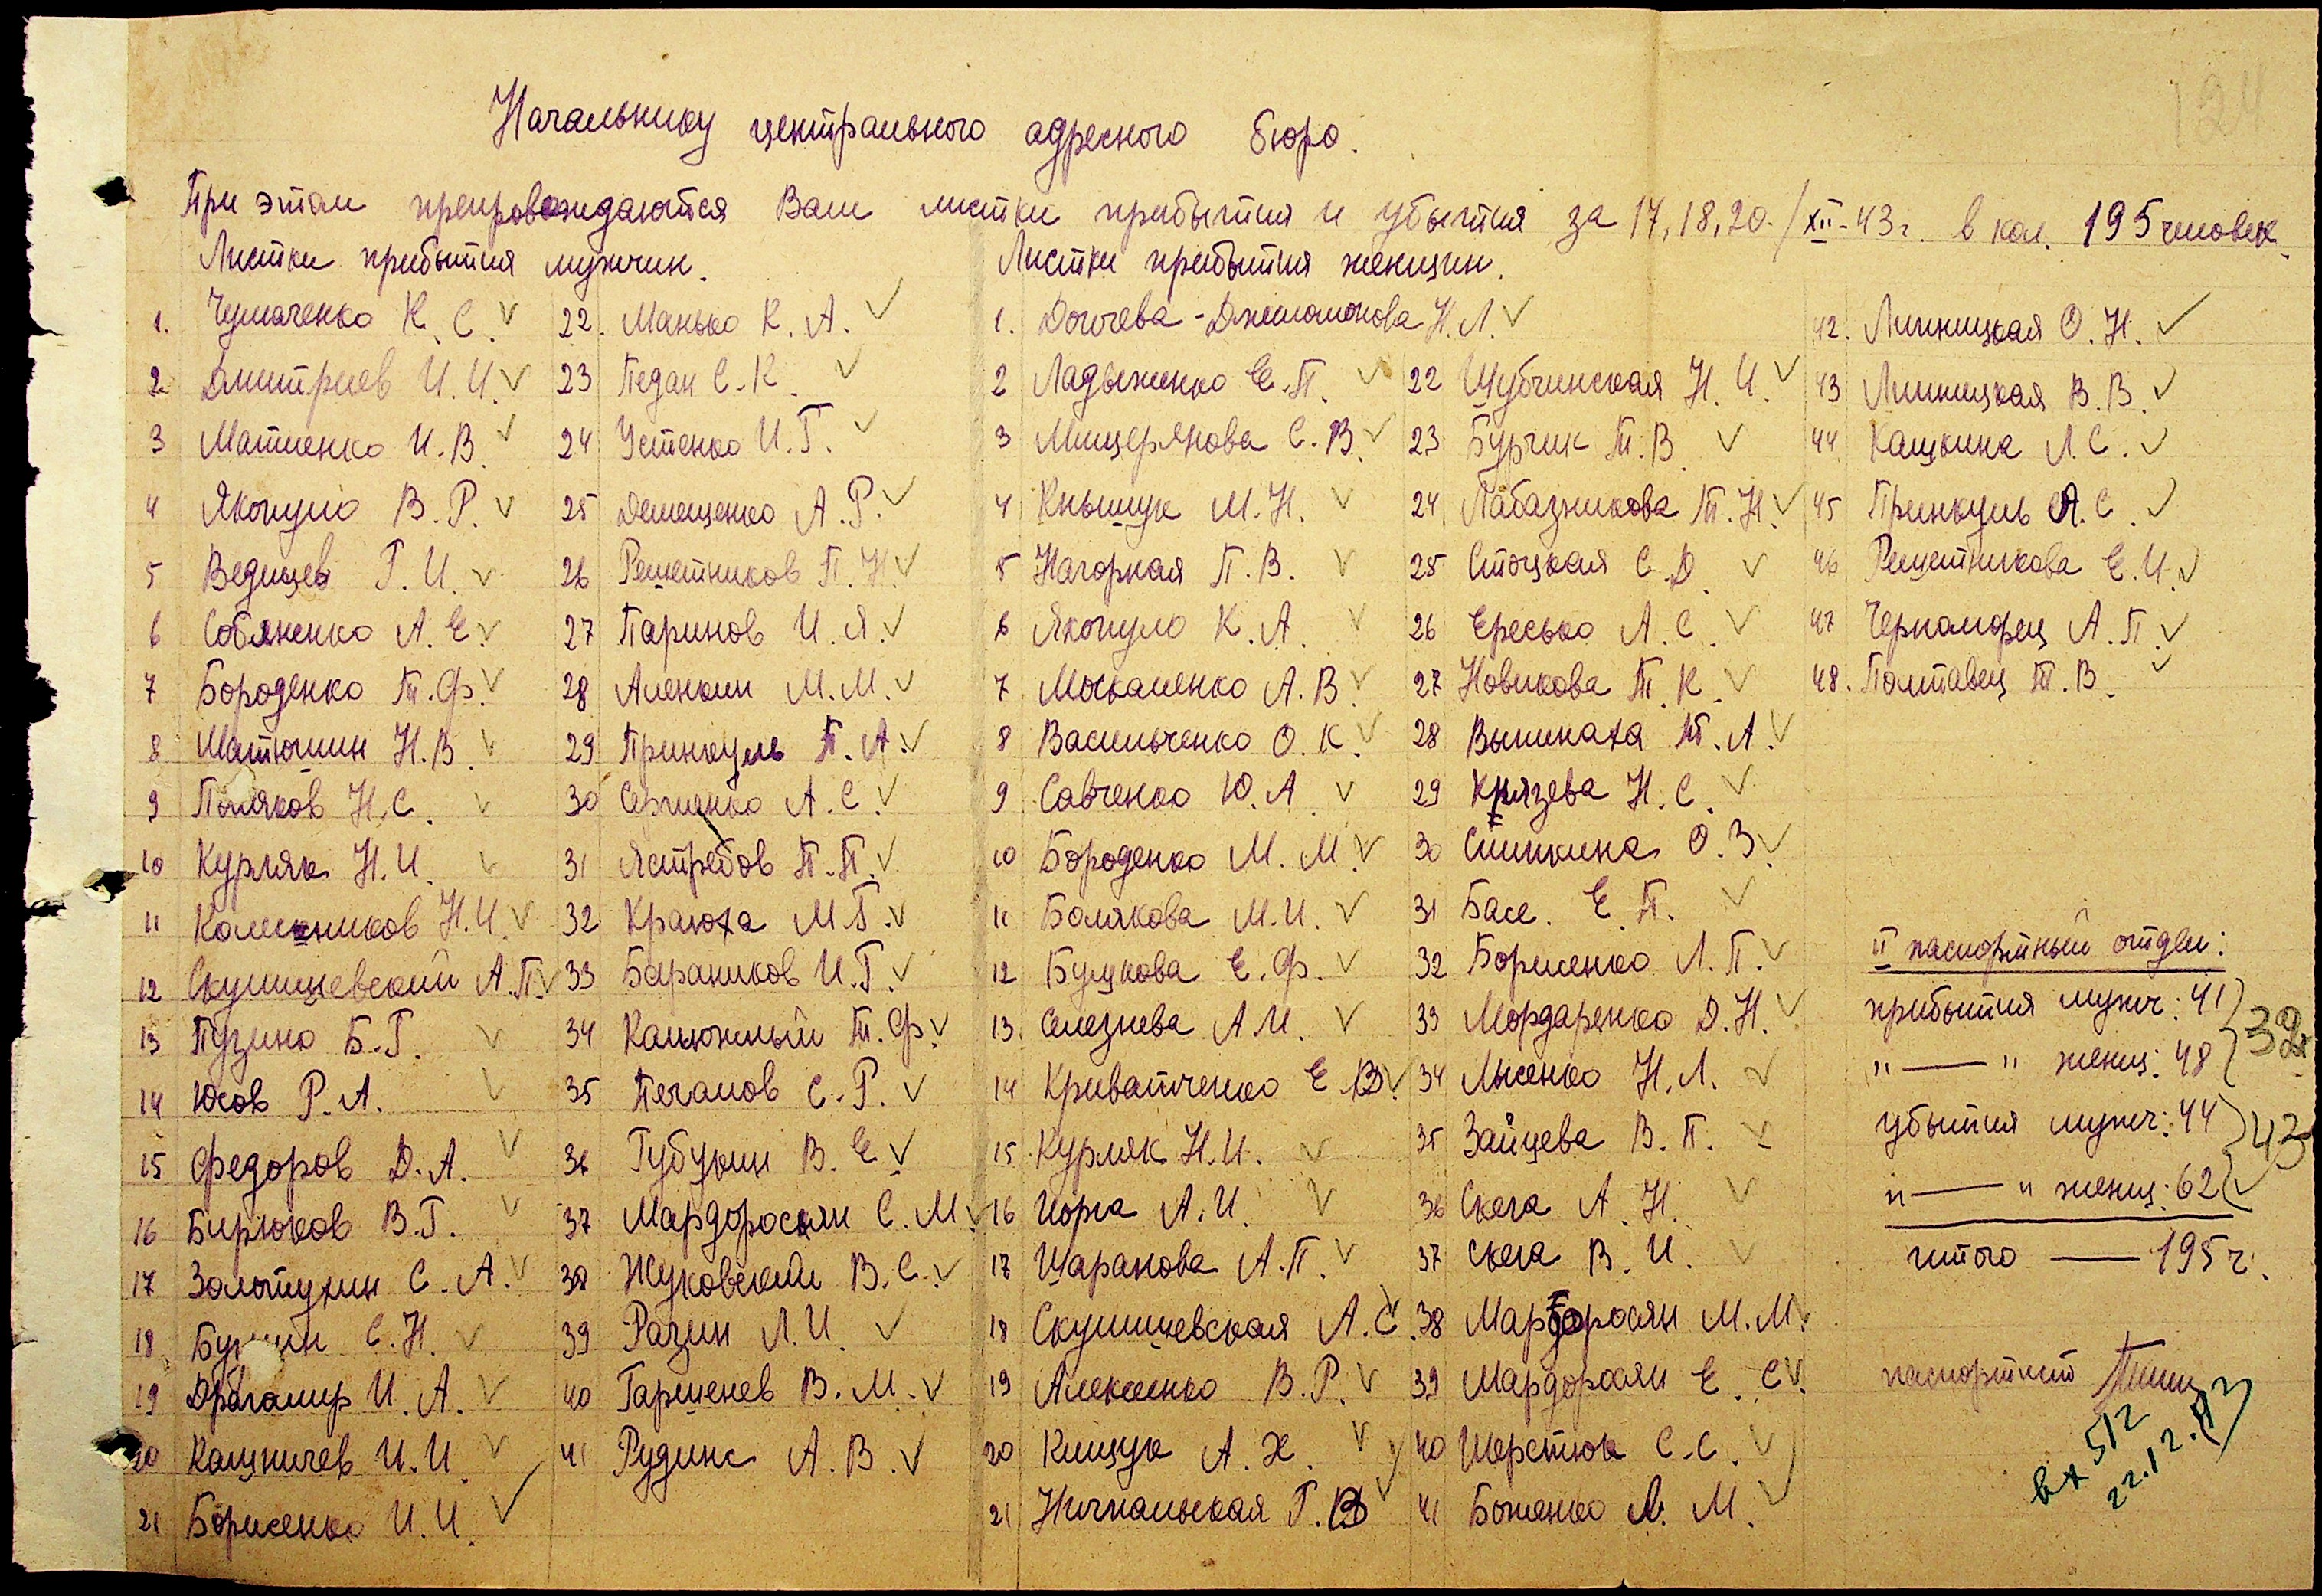 Начальнику центрального адресного бюро.
При этом препровождаются Вам листки прибытия и убытия за 17, 18, 20./XII-43г. в кол. 195 человек.
Листки прибытия мужчин.
1. Чумаченко К. С.
2 Дмитриев И. И.
3 Матиенко И. В.
4 Якопуло В. Р.
5 Ведищев Г. И.
6 Собяненко А. Е.
7 Бороденко Т. Ф.
8 Матюшин Н. В.
9 Поляков Н. С.
10 Курляк Н. И.
11 Колесников Н. И.
12 Скумишевский А. П.
13 Пузино Б. Г.
14 Юсов Р. А.
15 Федоров Д. А.
16 Бирюков В. Г.
17 Золотухин С. А.
18 С. Н.
19 Драгомир И. А.
20 Кашничев И. И.
21 Борисенко И. И.
22. Манько К. А.
23 Педан С. К.
24 Устенко И. Г.
25 Демещенко А. Р.
26 Решетников П. Н.
27 Паринов И. Я.
28 Аленкин М. М.
29 Принкуль П. А.
30 Сергиенко А. С.
31 Ястребов П. П.
32 Краюха М. Г.
33 Бараников И. Г.
34 Калюжный Т. Ф.
35 Печалов С. Р.
36 В. Е.
37 Мардоросян С. М.
38 Жуковский В. С.
39 Разин Л. И.
40 Гаршенев В. М.
41 Рудинс А. В.
Листки прибытия женщин.
1. Н. Л.
2 Ладыженко Е. П.
3 Мищерякова С. В.
4 Кнышук М. Н.
5 Нагорная П. В.
6 Якопуло К. А.
7 Москаленко А. В.
8 Васильченко О. К.
9 Савченко Ю. А.
10 Бороденко М. М.
11 Болякова М. И.
12 Булукова Е. Ф.
13. Селезнева А. И.
14 Криватченко Е. В.
15 Курляк Н. И.
16 Чорга А. И.
17 Шарапова А. П.
18 Скумишевская А. С.
19 Алексеенко В. Р.
20 Кищук А. Х.
21 Ничпальская Г. В
22 Шубчинская Н. И.
23 Бурчик Т. В.
24 Лабазникова Т. Н.
25 Стоцкая С. Д.
26 Ересько А. С.
27 Новикова Т. К.
28 Т. А.
29 Князева Н. С.
30 Сипкина О. З.
31 Басе. Е. П.
32 Борисенко Л. П.
33 Мордаренко Д. Н.
34 Лысенко Н. Л.
35 Зайцева В. П.
36 Скега А. Н.
37 Скега В. И.
38 Мардоросян М. М.
39 Мардоросян Е. С.
40 Шерстюк С. С.
41 Боженко Л. М.
42. Линницкая О. Н.
43 Линницкая В. В.
44 Кашкина Л. С.
45 Принкуль А. С.
46 Решетникова Е. И.
47 Черноморец А. П.
48. Полтавец Т. В.
II паспортный отдел:
прибытия мужч: 41
" — " женщ: 48
32
убытия мужч: 44
" — " женщ: 62
43
итого — 195 ч.
паспортист
вх 512
22.12.43
124